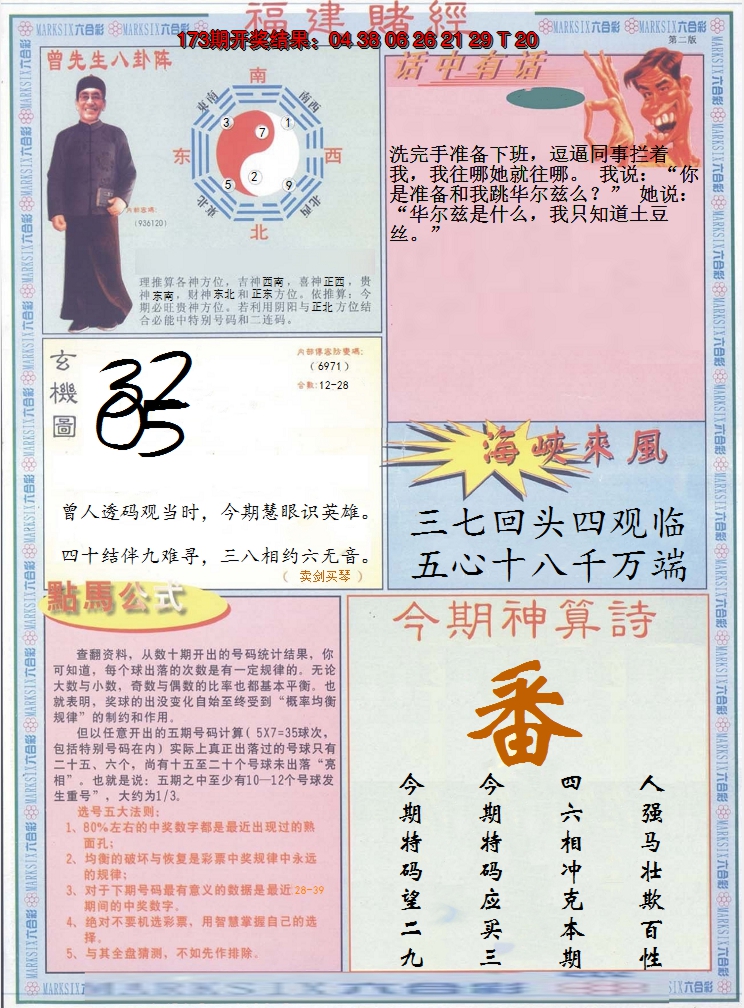 福建賭經
173期开奖结果：04 38 06 26 21 29 T 20
第二版
曾先生八卦阵
南
东南
南西
3
7
1
东
西
5
2
9
東北
北西
北
内部密碼：
（936120）
理推算各神方位，吉神西南，喜神正西，贵
神东南，财神东北和正东方位。依推算：今
期必旺贵神方位。若利用阴阳与正北方位结
合必能中特别号码和二连码。
话中有话
洗完手准备下班，逗逼同事拦着
我，我往哪她就往哪。 我说：“你
是准备和我跳华尔兹么？” 她说：
“华尔兹是什么，我只知道土豆
丝。”
玄機圖
内部傳密防覺碼：
（6971）
合数：12-28
曾人透码观当时，今期慧眼识英雄。
四十结伴九难寻，三八相约六无音。
（ 卖剑买琴 ）
海峡來風
三七回头四观临
五心十八千万端
點馬公式
查翻资料，从数十期开出的号码统计结果，你
可知道，每个球出落的次数是有一定规律的。无论
大数与小数，奇数与偶数的比率也都基本平衡。也
就表明，奖球的出没变化自始至终受到“概率均衡
规律”的制约和作用。
但以任意开出的五期号码计算（ 5X7=35球次，
包括特别号码在内）实际上真正出落过的号球只有
二十五、六个，尚有十五至二十个号球未出落“亮
相”。也就是说：五期之中至少有10—12个号球发
生重号”，大约为1/3。
选号五大法则：
1、80%左右的中奖数字都是最近出现过的熟
面孔；
2、均衡的破坏与恢复是彩票中奖规律中永远
的规律；
3、对于下期号码最有意义的数据是最近28-39
期间的中奖数字。
4、绝对不要机选彩票，用智慧掌握自己的选
择。
5、与其全盘猜测，不如先作排除。
今期神算詩
番
人强马壮欺百性
四六相冲克本期
今期特码应买三
今期特码望二九
MARKSIX六合彩